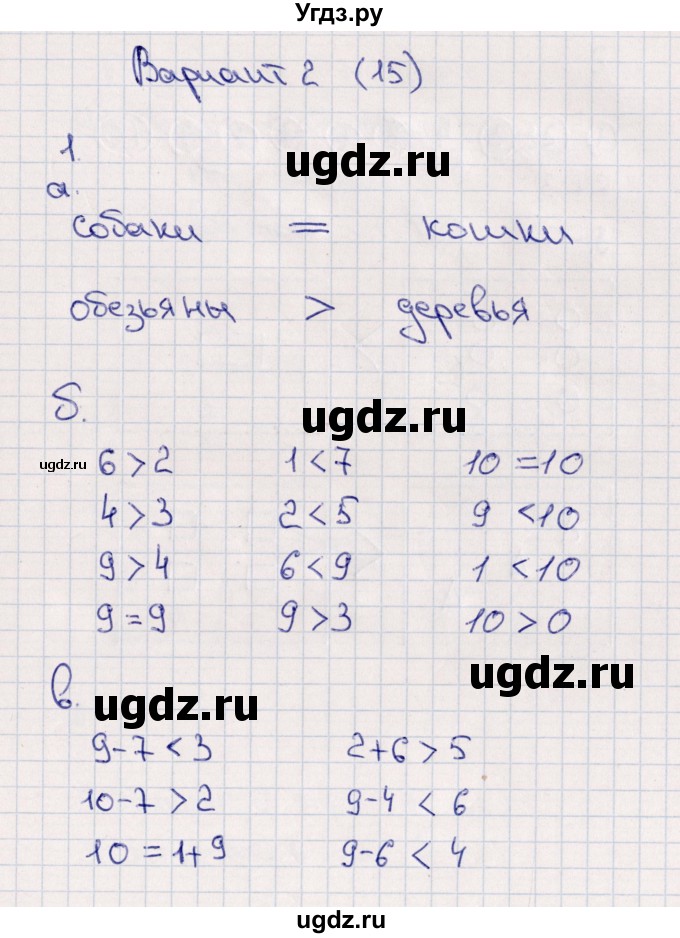 Угдз.ру
Вариант 2 (15)
1.
ugdz.ru
а.
собаки = кошки
обезьяны > деревья
б.
ugdz.ru
ugdz.ru
6 > 2 1 < 7 10 = 10
4 > 3 2 < 5 9 < 10
9 > 4 6 < 9 1 < 10
9 = 9 9 > 3 10 > 0
ugdz.ru
в.
ugdz.ru
9-7 < 3 2+6 > 5
10-7 > 2 9-4 < 6
10 = 1+9 9-6 < 4
ugdz.ru